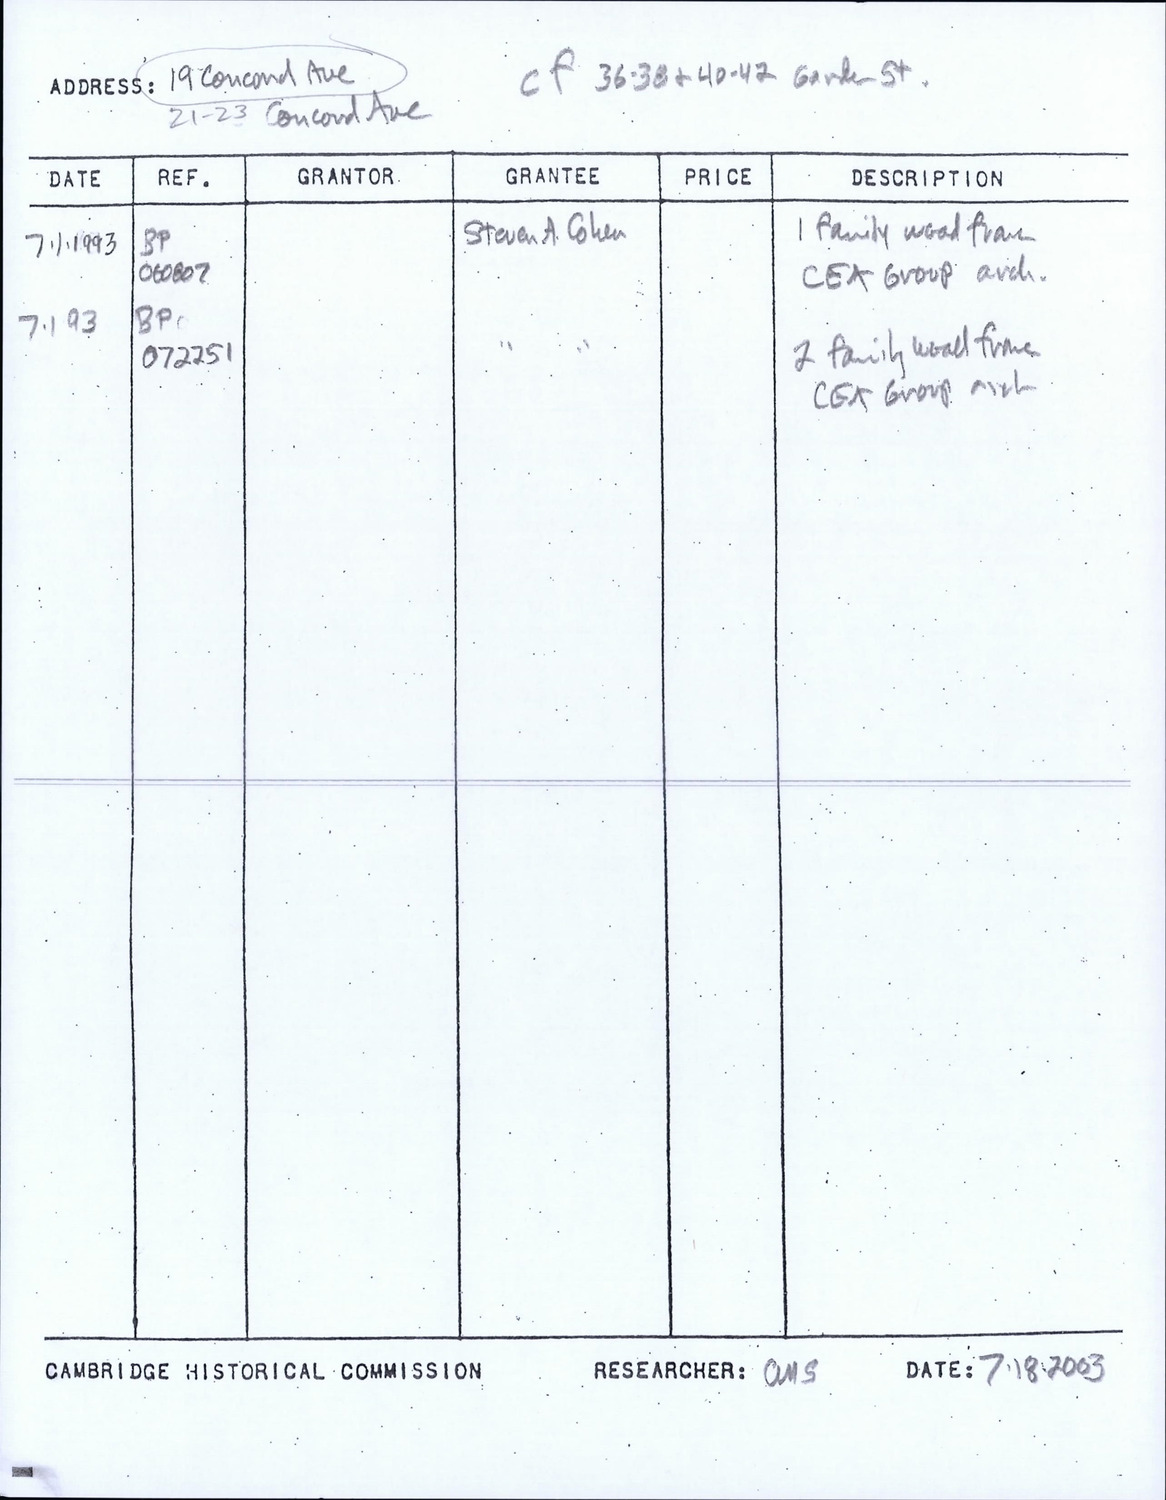 ADDRESS: 19 Concord Ave cf 36-38 + 40-42 Garden St.
21-23 Concord Ave
DATE REF. GRANTOR GRANTEE PRICE DESCRIPTION
7.1.1993 BP Steven A. Cohen 1 family wood frame
060807 CEA Group arch.
7.1 93 BP
072251 " " 2 family wood frame
CEA Group arch
CAMBRIDGE HISTORICAL COMMISSION RESEARCHER: DATE: 7.18.2003